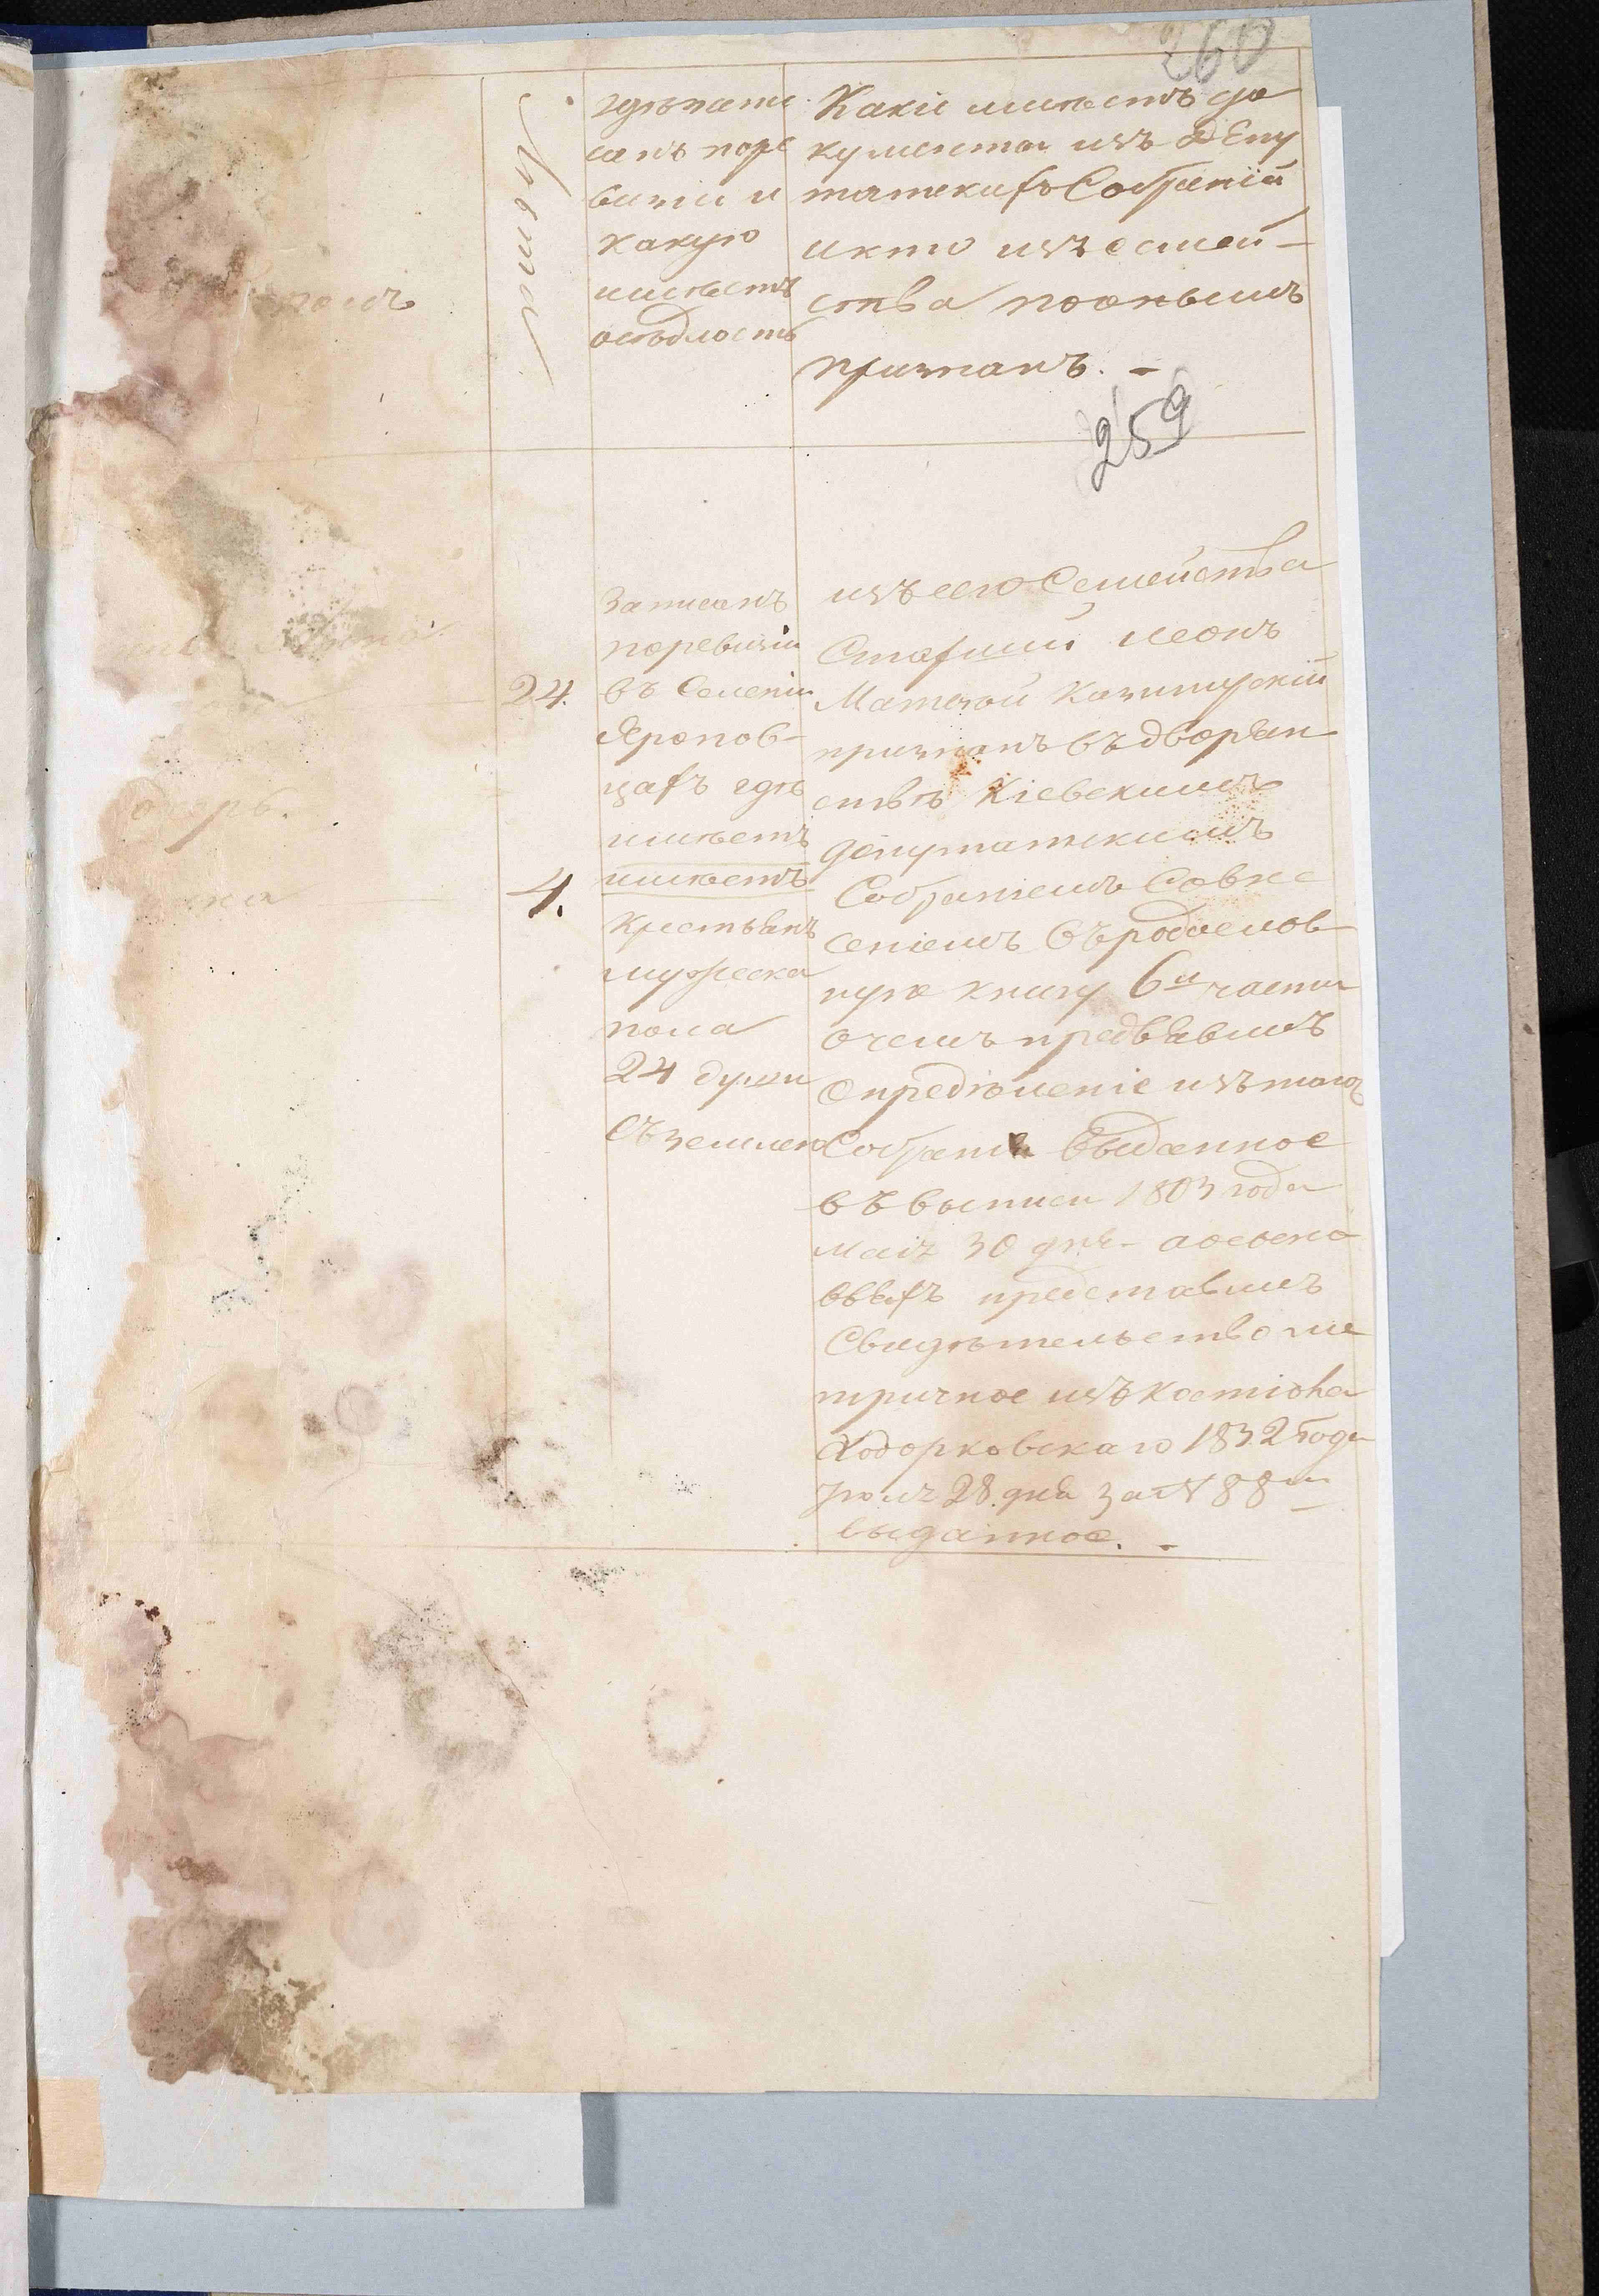 260
Лѣта
гдѣ запи
санъ поре
визіи и
какую
имѣетъ
осѣдлость
Какіе имѣетъ до
кументы изъ дЕпу
татскихъ Собраній
и кто изъ семей-
ства по онымъ
признанъ. -
259
24.
4.
Записанъ
поревизіи
въ Селеніи
Яропов-
цахъ гдѣ
имѣетъ
имѣетъ
крестьянъ
мужеска
пола
24 души
съ землею
изъ его Семейства
Старшій Леонъ
Матвѣй Казимирскій
признанъ въ дворян
ствѣ Кіевскимъ
депутатскимъ
Собраніемъ Совне
сеніемъ въ родослов
ную книгу 6й части
очемъ предъявилъ
Опредѣленіе изъ того
Собранія выданное
въ выписи 1803 года
Маія 30 дня
представилъ
Свидѣтельство ме
тричное изъ Костіола
Ходорковскаго 1832 Года
28 дня за № 88м
выданное. -